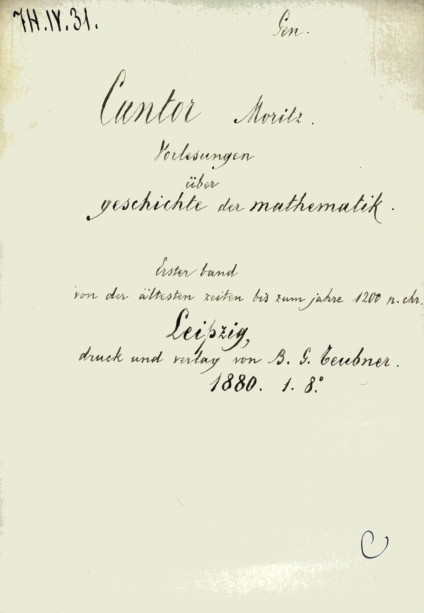 7H.IV.31.
Gen.
Cantor Moritz.
Vorlesungen
über
geschichte der mathematik.
Erster band
von der ältesten zeiten bis zum jahre 1200 n. chr.
Leipzig,
druck und verlag von B. G. Teubner.
1880. 1. 8.º
C